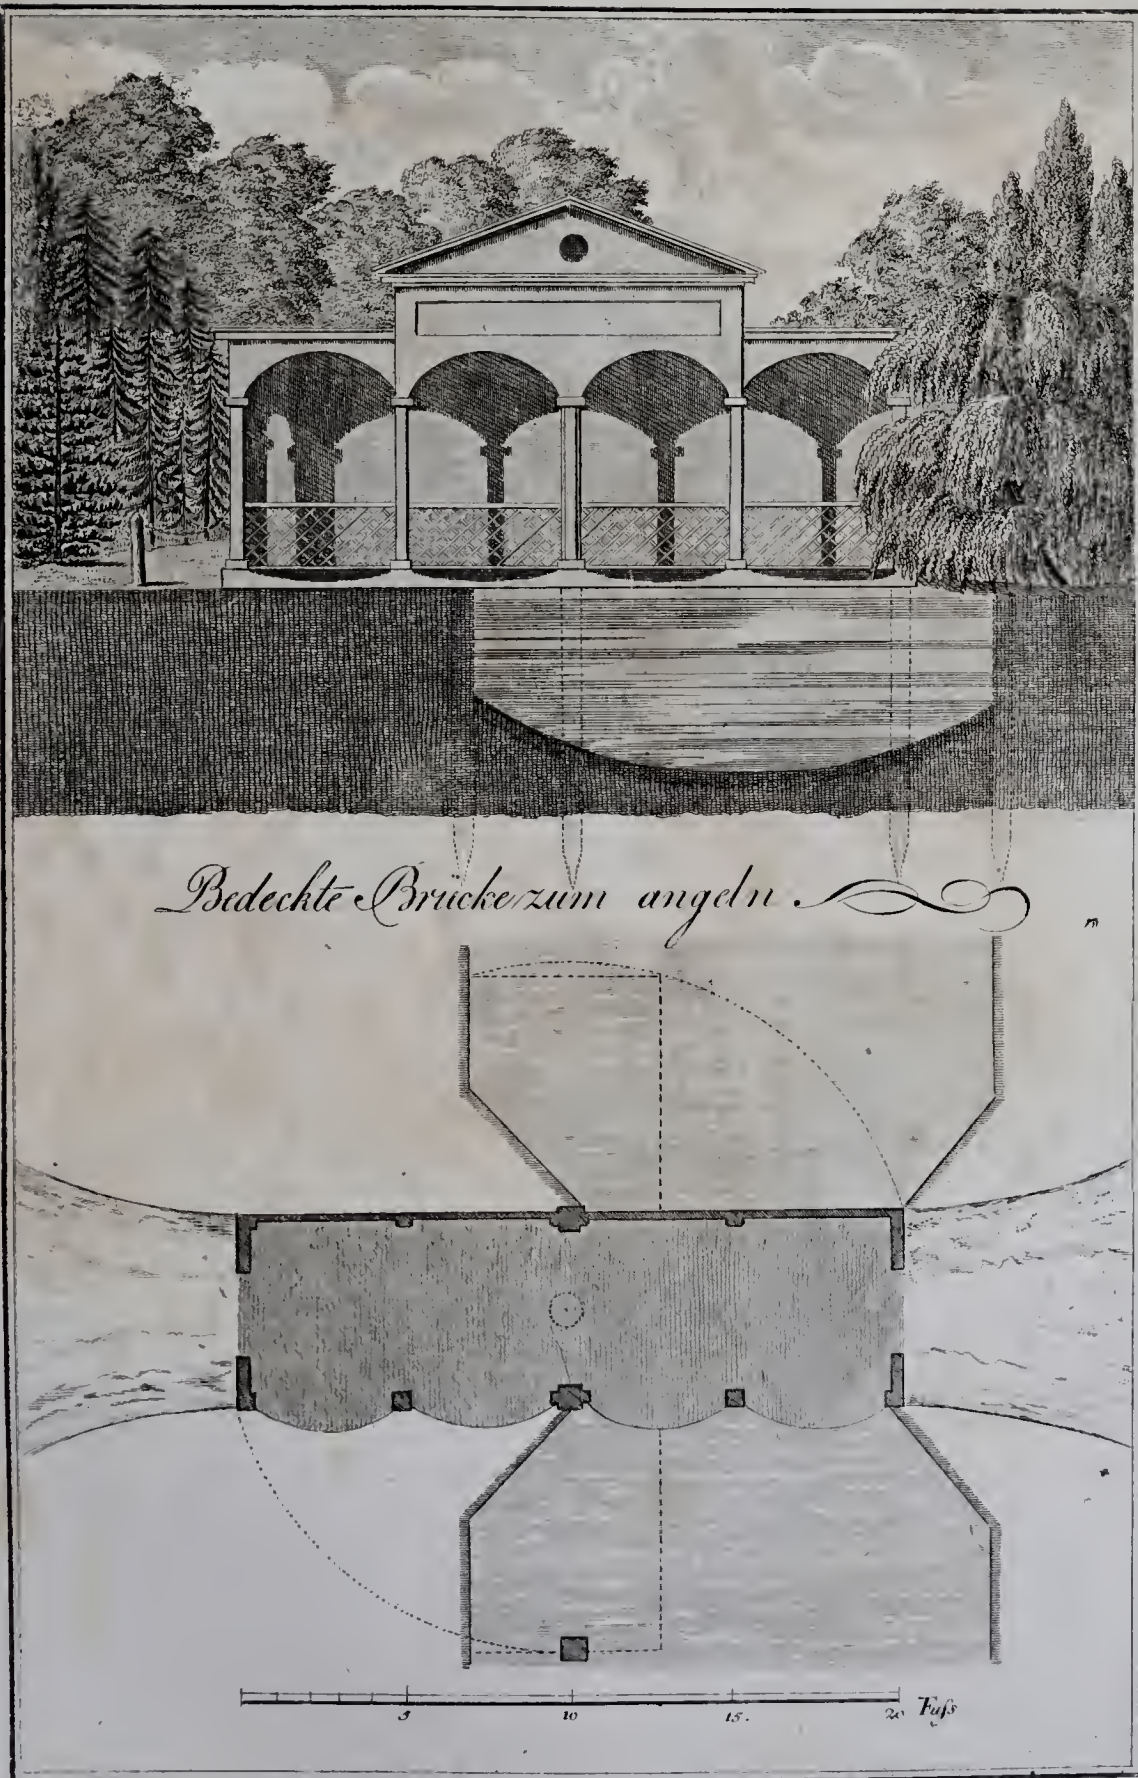 Bedeckte Brücke zum angeln.
5 10 15. 20 Fuſs